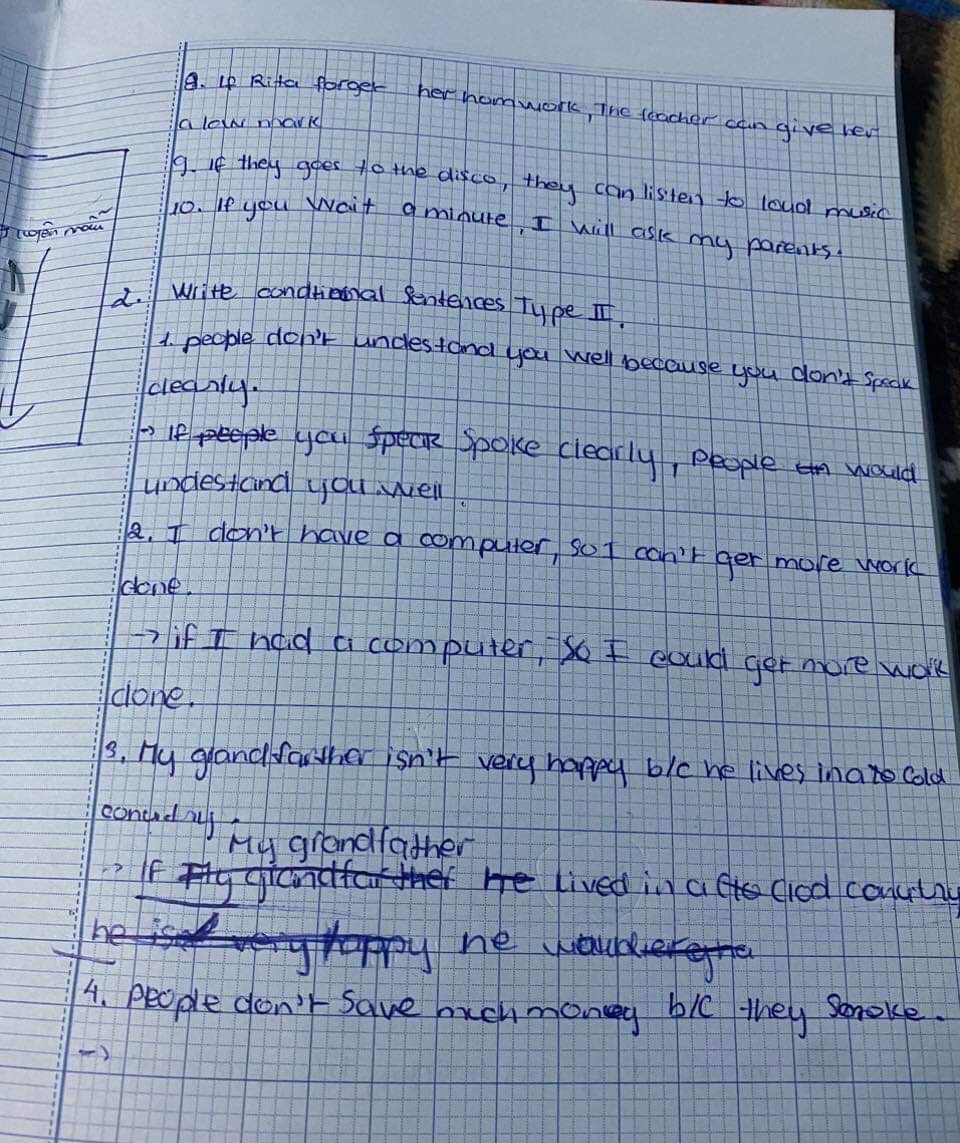 8. If Rita forget her homwork, The teacher can give her
a low mark
9. If they goes to the disco, they can listen to loud music
10. If you Wait a minute, I will ask my parents.
2. Write conditional Sentences Type II.
1. people don't undestand you well because you don't speak
clearly.
→ If people you speak spoke clearly, people would
undestand you well.
2. I don't have a computer, so I can't ger more work
done.
→ if I had a computer, so I could ger more work
done.
3. My glandfarther isn't very happy b/c he lives in a cold
My grandfather
→ If My glandfarther he lived in a
he is very happy he
4. people don't save much money b/c they smoke.
→